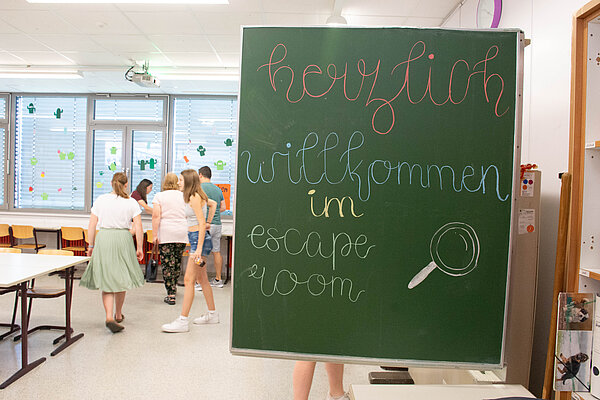 herzlich
willkommen
im
escape
room